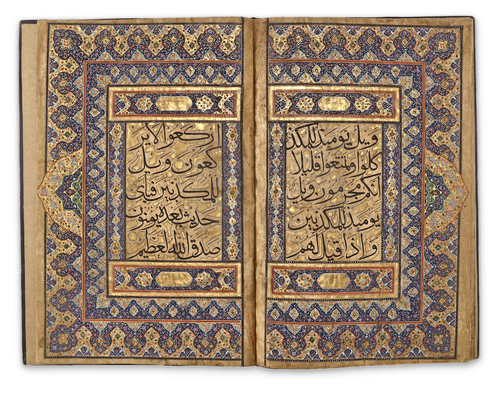 ويل يومئذ للمكذ
كلوا وتمتعوا قليلا
انكم مجرمون ويل
يومئذ للمكذبين
واذا قيل لهم
اركعوا لا ير
كعون ويل
للمكذبين فباى
حديث بعده يؤمنون
صدق الله العظيم